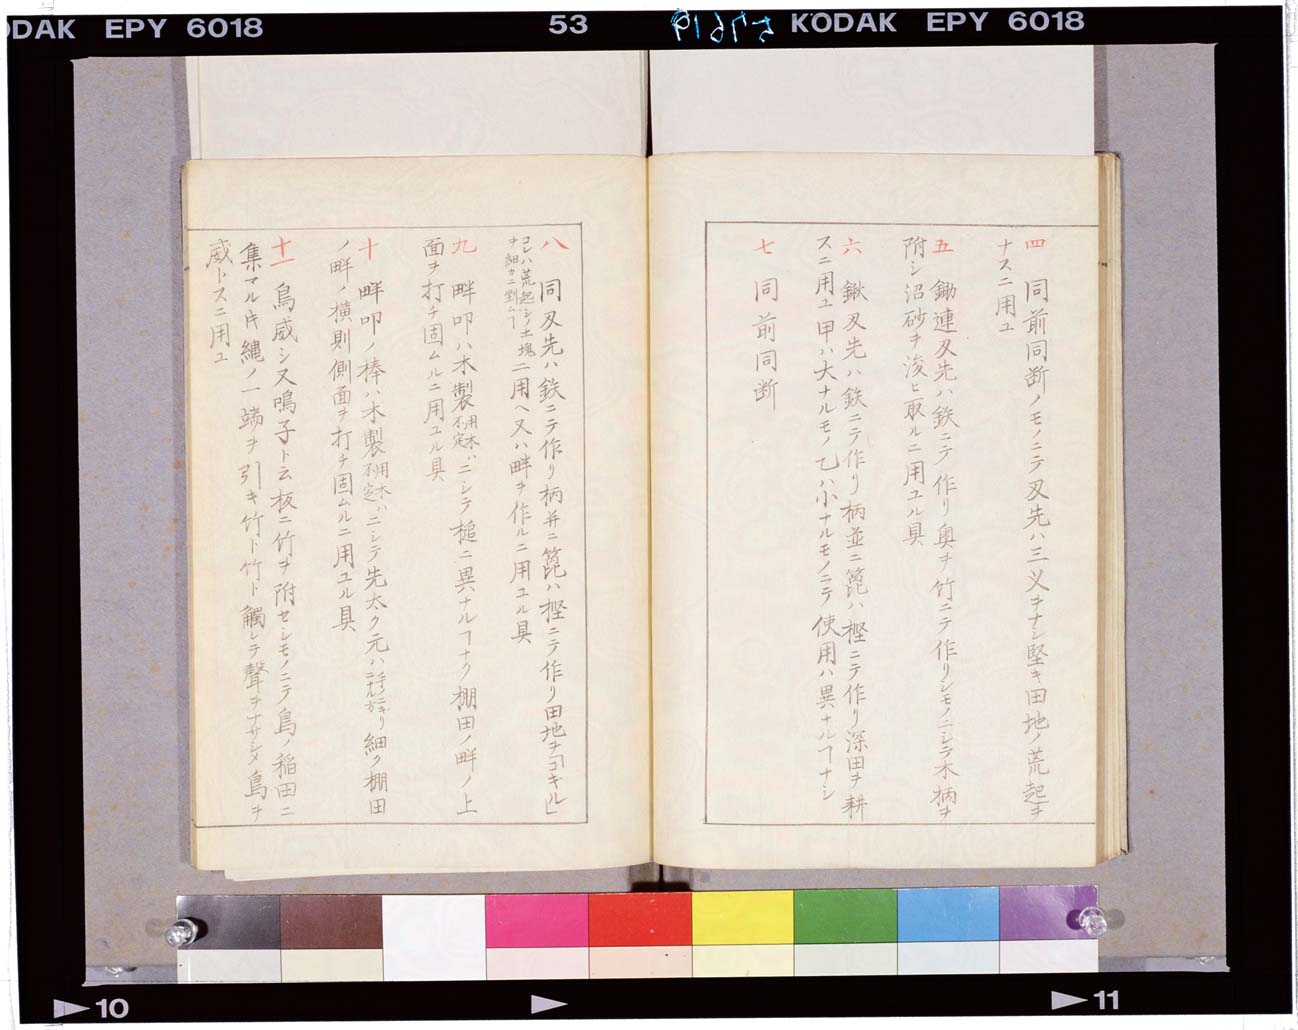 ODAK EPY 6018
53
KODAK EPY 6018
四 同前同断ノモノニテ刄先ハ三义ヲナシ堅キ田地ノ荒起ヲ
ナスニ用ユ
五 鋤連刄先ハ鉄ニテ作リ奥ヲ竹ニテ作リシモノニシテ木柄ヲ
附シ沼砂ヲ浚ヒ取ルニ用ユル具
六 鍬刄先ハ鉄ニテ作リ柄並ニ箆ハ樫ニテ作リ深田ヲ耕
スニ用ユ甲ハ大ナルモノ乙ハ小ナルモノニテ使用ハ異ナルヿナシ
七 同前同断
八 同刄先ハ鉄ニテ作リ柄并ニ箆ハ樫ニテ作リ田地ヲ「コギル」
コレハ荒起シノ土塊
ヲ細カニ割ムヿ
ニ用ヘ又ハ畔ヲ作ルニ用ユル具
九 畔叩ハ木製用木ハ不定ニシテ槌ニ異ナルヿナク棚田ノ畔ノ上
面ヲ打チ固ムルニ用ユル具
十 畔叩ノ棒ハ木製用木ハ不定ニシテ先太ク元ハ手ノニキリニナル方細ク棚田
ノ畔ノ横則側面ヲ打チ固ムルニ用ユル具
十一 鳥威シ又鳴子ト云板ニ竹ヲ附セシモノニテ鳥ノ稲田ニ
集マルキ縄ノ一端ヲ引キ竹ト竹ト觸レテ聲ヲナサシメ鳥ヲ
威トスニ用ユ
10
11